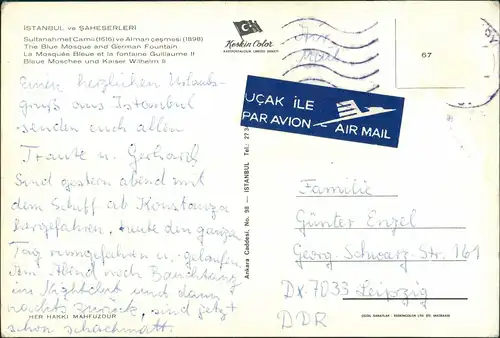 İSTANBUL ve ŞAHESERLERİ
Sultanahmet Camii (1616) ve Alman çeşmesi (1898)
The Blue Mosque and German Fountain
La Mosquée Bleue et la fontaine Guillaume II
Blaue Moschee und Kaiser Wilhelm II
Keskin Color
67
UÇAK İLE
PAR AVION AIR MAIL
Einen herzlichen Urlaubs-
gruß aus Istanbul
senden euch allen
Traute u. Gerhard
Sind gestern abend mit
dem Schiff ab Konstanza
hergefahren, heute den ganzen
Tag rumgefahren u. gelaufen
dem Abend noch Bauchtanz
im Nightclub und dann
nachts zurück, sind jetzt
schon schachmatt.
HER HAKKI MAHFUZDUR
Ankara Caddesi, No. 98 — İSTANBUL Tel.: 27
Familie
Günter Engel
Georg-Schwarz-Str. 161
Dx-7033 Leipzig
DDR